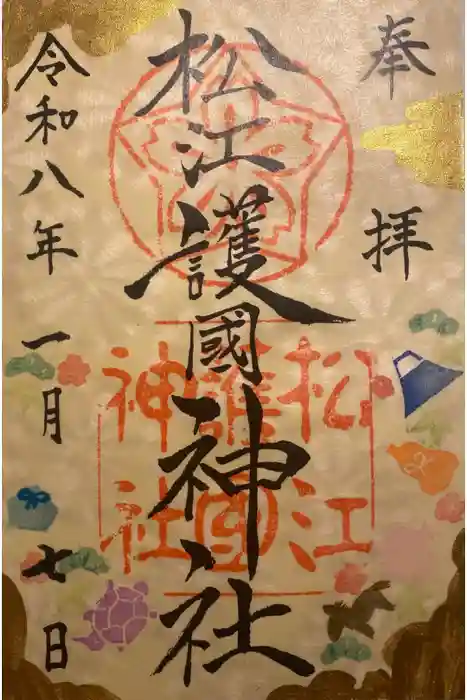 奉拝
松江護國神社
松江護國神社
令和八年一月七日